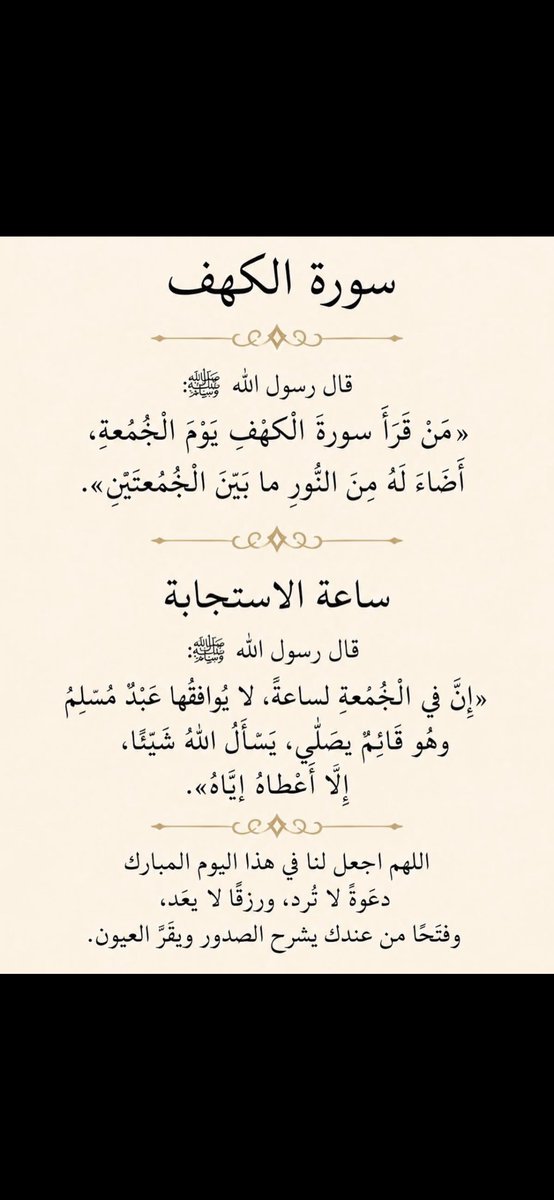 سورة الكهف
قال رسول الله ﷺ:
«مَنْ قَرَأَ سورةَ الْكهْفِ يَوْمَ الْجُمُعةِ،
أَضَاءَ لَهُ مِنَ النُّورِ ما بَيّنَ الْجُمُعتَيَّنِ».
ساعة الاستجابة
قال رسول الله ﷺ:
«إِنَّ في الْجُمْعةِ لساعةً، لا يُوافقُها عَبْدٌ مُسّلِمُ
وهُو قَائِمٌ يصَلّي، يَسّأَلُ اللهُ شَيّئًا،
إِلَّا أَعْطاهُ إيَّاهُ».
اللهم اجعل لنا في هذا اليوم المبارك
دعَوةً لا تُرد، ورزقًا لا يعَد،
وفتَحًا من عندك يشرح الصدور ويقَرَّ العيون.